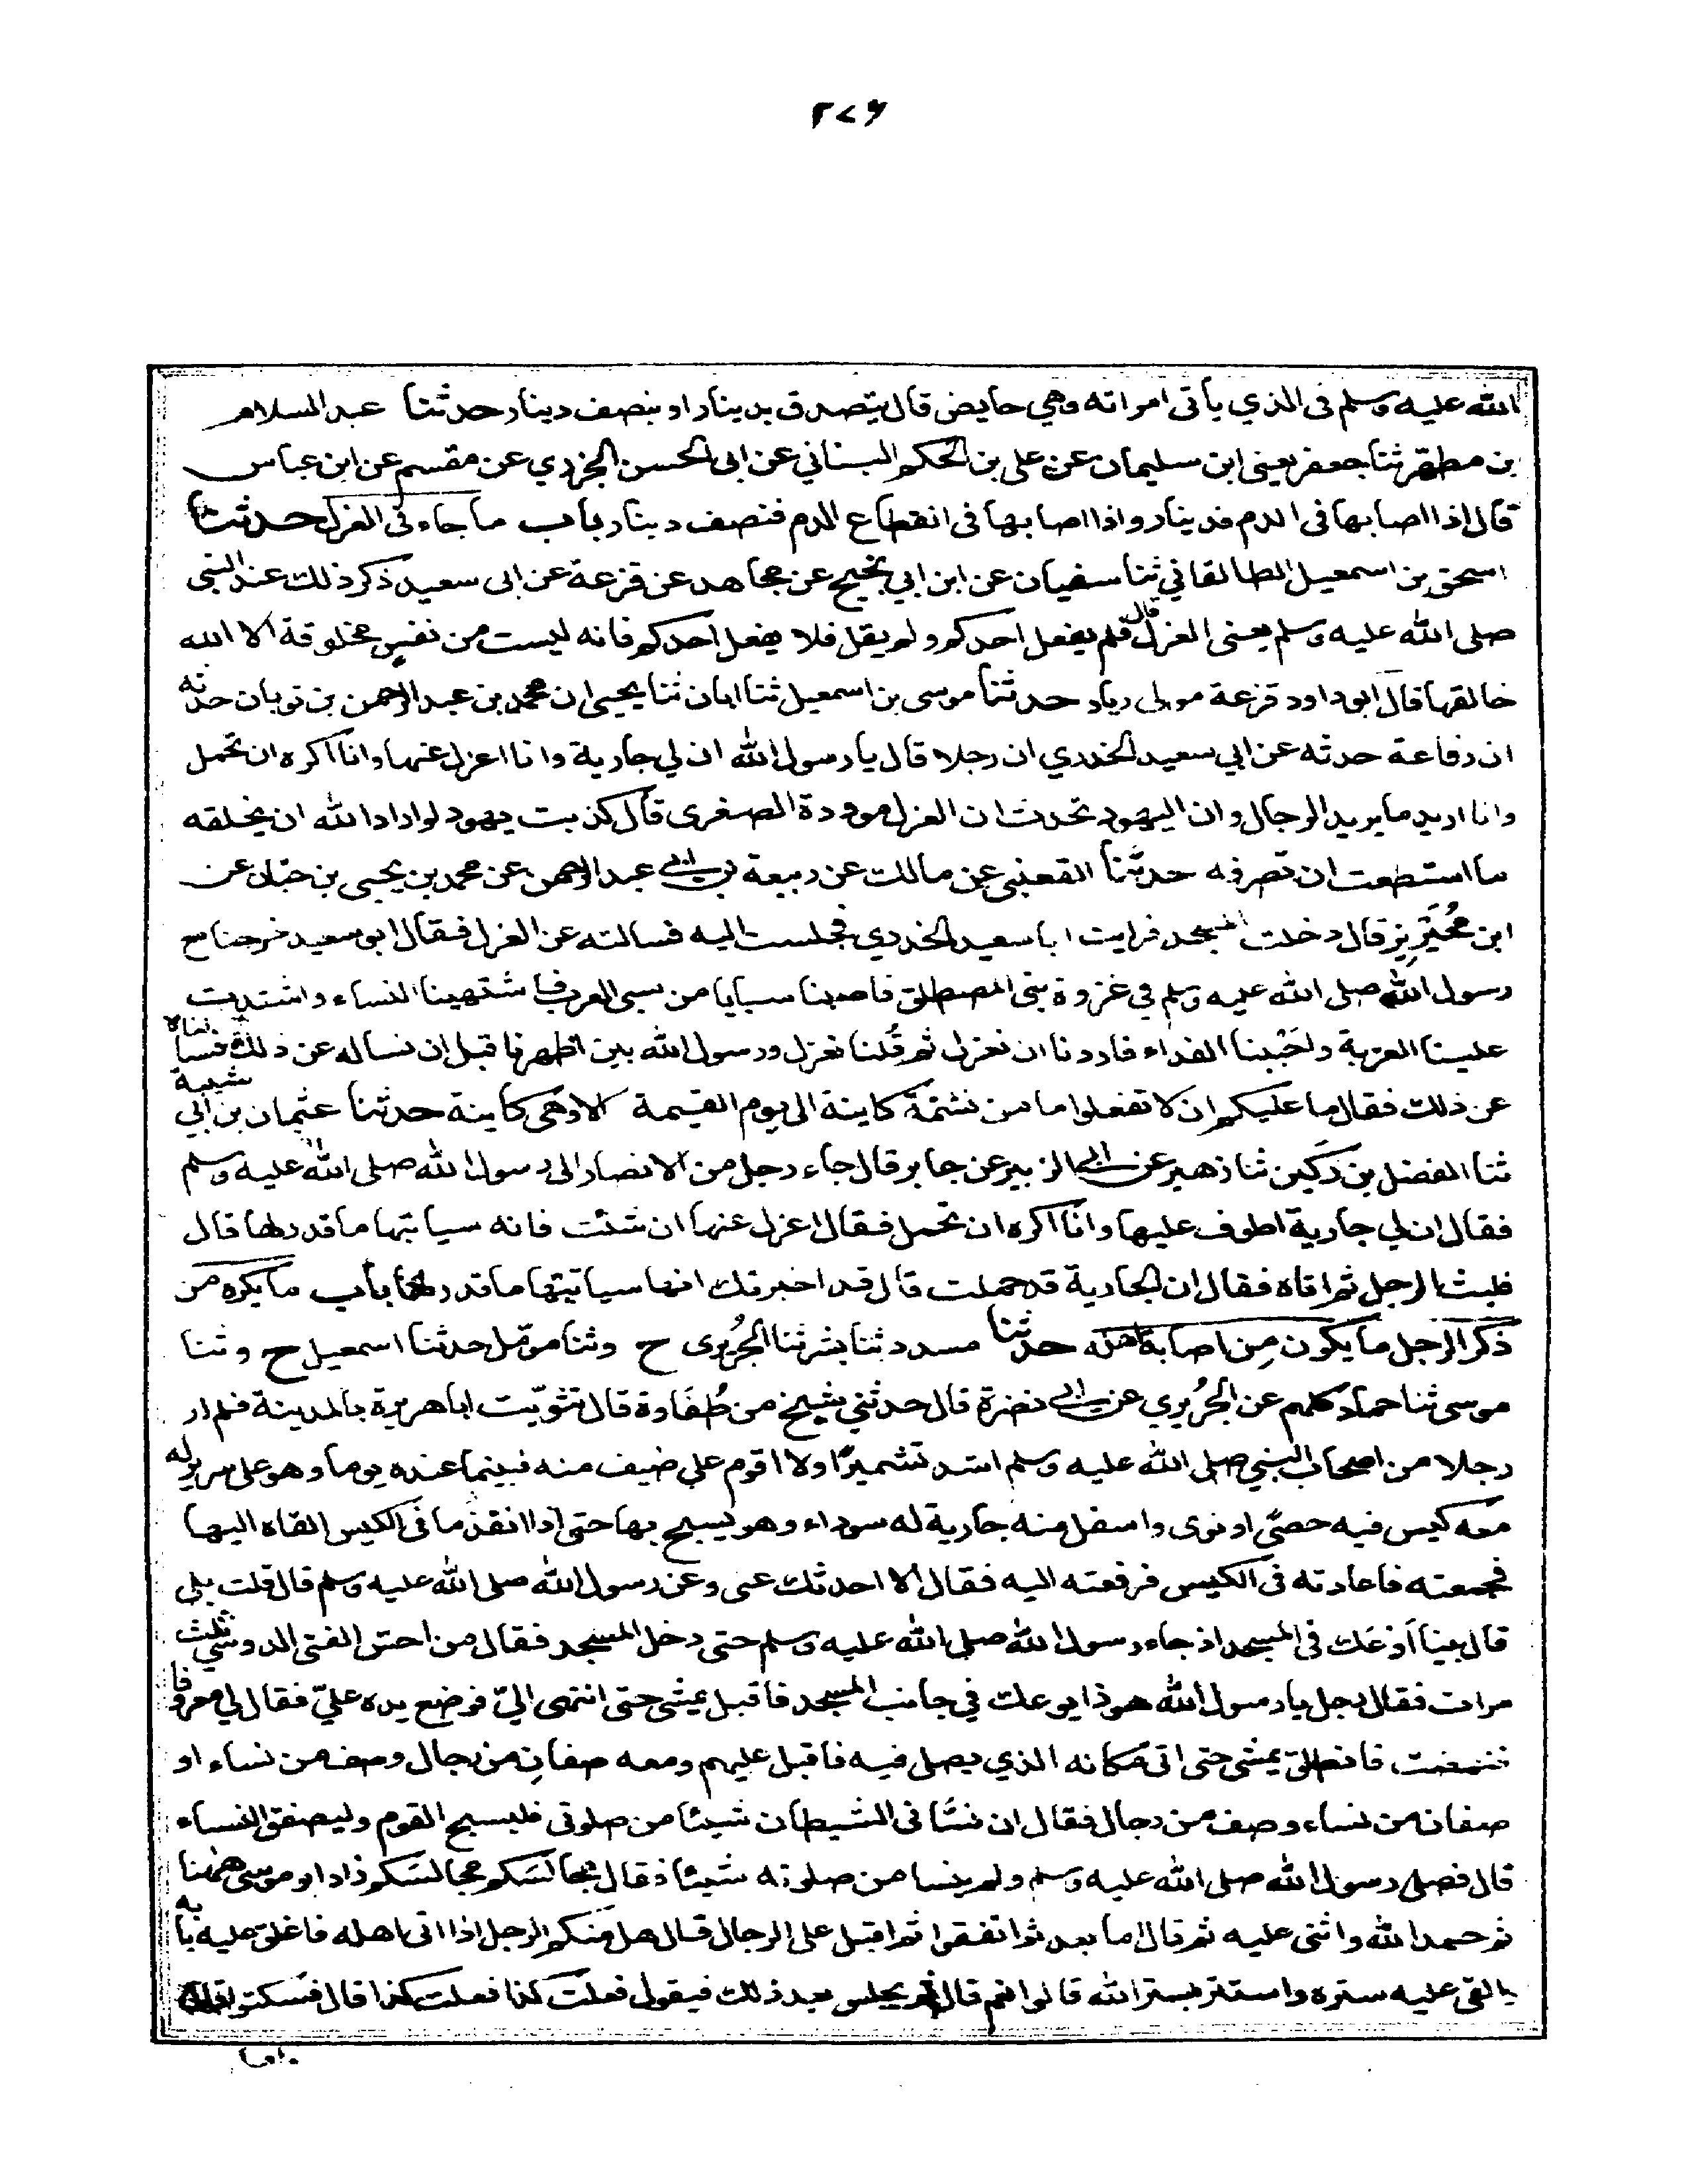 ٢٧٦
الله عليه وسلم في الذي يأتى امراته وهي حايض قال يتصدق بدينار او بنصف دينار حدثنا عبد السلام
بن مطهّر ثنا جعفر يعنى ابن سليمان عن على بن الحكم البناني عن ابى الحسن الجزري عن مقسم عن ابن عباس
قال اذا اصابها فى الدم فدينار واذا اصابها فى انقطاع الدم فنصف دينار باب ما جاء فى العزل حدثنا
اسحق بن اسمعيل الطالقاني ثنا سفيان عن ابن ابي نجيح عن مجاهد عن قزعة عن ابى سعيد ذكر ذلك عند النبى
صلى الله عليه وسلم يعنى العزل قال فلم يفعل احدكم ولم يقل فلا يفعل احدكم فانه ليست من نفسٍ مخلوقة الا الله
خالقها قال ابو داود قزعة مولى زياد حدثنا موسى بن اسمعيل ثنا ابان ثنا يحيى ان محمد بن عبد الرحمن بن ثوبان حدثه
ان رفاعة حدثه عن ابي سعيد الخدري ان رجلا قال يا رسول الله ان لي جارية وانا اعزل عنها وانا اكره ان تحمل
وانا اريد ما يريد الرجال وان اليهود تحدث ان العزل موودة الصغرى قال كذبت يهود لو اراد الله ان يخلقه
ما استطعت ان تصرفه حدثنا القعنبى عن مالك عن ربيعة بن ابى عبد الرحمن عن محمد بن يحيى بن حبّان عن
ابن مُحَيْرِيز قال دخلت المسجد فرايت ابا سعيد الخدري فجلست اليه فسالته عن العزل فقال ابو سعيد خرجنا مع
رسول الله صلى الله عليه وسلم في غزوة بنى المصطلق فاصبنا سبايا من سبى العرب فاشتهينا النساء واشتدت
علينا العزبة واحَبْبنا الفداء فاردنا ان نعزل ثم قُلنا نعزل ورسول الله بين اظهرنا قبل ان نساله عن ذلك فسالناه
عن ذلك فقال ما عليكم ان لا تفعلوا ما من نسَمَة كاينة الى يوم القيمة الا وهى كاينة حدثنا عثمان بن ابي شيبة
ثنا الفضل بن دكين ثنا زهير عن ابى الزبير عن جابر قال جاء رجل من الانصار الى رسول الله صلى الله عليه وسلم
فقال ان لي جارية اطوف عليها وانا اكره ان تحمل فقال اعزل عنها ان شئت فانه سياتيها ما قدر لها قال
فلبث الرجل ثم اتاه فقال ان الجارية قد حملت قال قد اخبرتك انها سياتيها ما قدر لها باب ما يكره من
ذكر الرجل ما يكون مِن اصابة اهله حدثنا مسدد ثنا بشر ثنا الجُريرى ح وثنا مومّل حدثنا اسمعيل ح وثنا
موسى ثنا حماد كلهم عن الجُريري عن ابى نضرة قال حدثني شيخ من طُفَاوة قال تثوّيت ابا هريرة بالمدينة فلم ار
رجلا من اصحاب النبي صلى الله عليه وسلم اشد تشميرًا ولا اقوم على ضيف منه فبينما عنده يوما وهو على سرير له
معه كيس فيه حصًى او نوى واسفل منه جارية له سوداء وهو يسبح بها حتى اذا انفذ ما فى الكيس القاه اليها
فجمعته فاعادته فى الكيس فرفعته اليه فقال الا احدثك عنى وعن رسول الله صلى الله عليه وسلم قال قلت بلى
قال بينا اَوعَك فى المسجد اذ جاء رسول الله صلى الله عليه وسلم حتى دخل المسجد فقال من احسّ الفتى الدوسّي ثلث
مرات فقال رجل يا رسول الله هو ذا يوعك في جانب المسجد فاقبل يمشى حتى انتهى اليّ فوضع يده عليّ فقال لي معروفا
فنهضت فانطلق يمشى حتى اتى مكانه الذي يصلى فيه فاقبل عليهم ومعه صفانِ من رجال وصف من نساء او
صفان من نساء وصف من رجال فقال ان نسّانى الشيطان شيئًا من صلوتى فليسبح القوم وليصفق النساء
قال فصلى رسول الله صلى الله عليه وسلم ولم ينسا من صلوته شيئًا فقال مجالسَكم مجالسَكم زاد موسى ههُنا
ثم حمد الله واثنى عليه ثم قال اما بعد ثم اتفقوا ثم اقبل على الرجال قال هل منكم الرجل اذا اتى اهله فاغلق عليه بابه
والقى عليه ستره واستتر بستر الله قالوا نعم قال ثم يجلس بعد ذلك فيقول فعلت كذا فعلت كذا قال فسكتوا